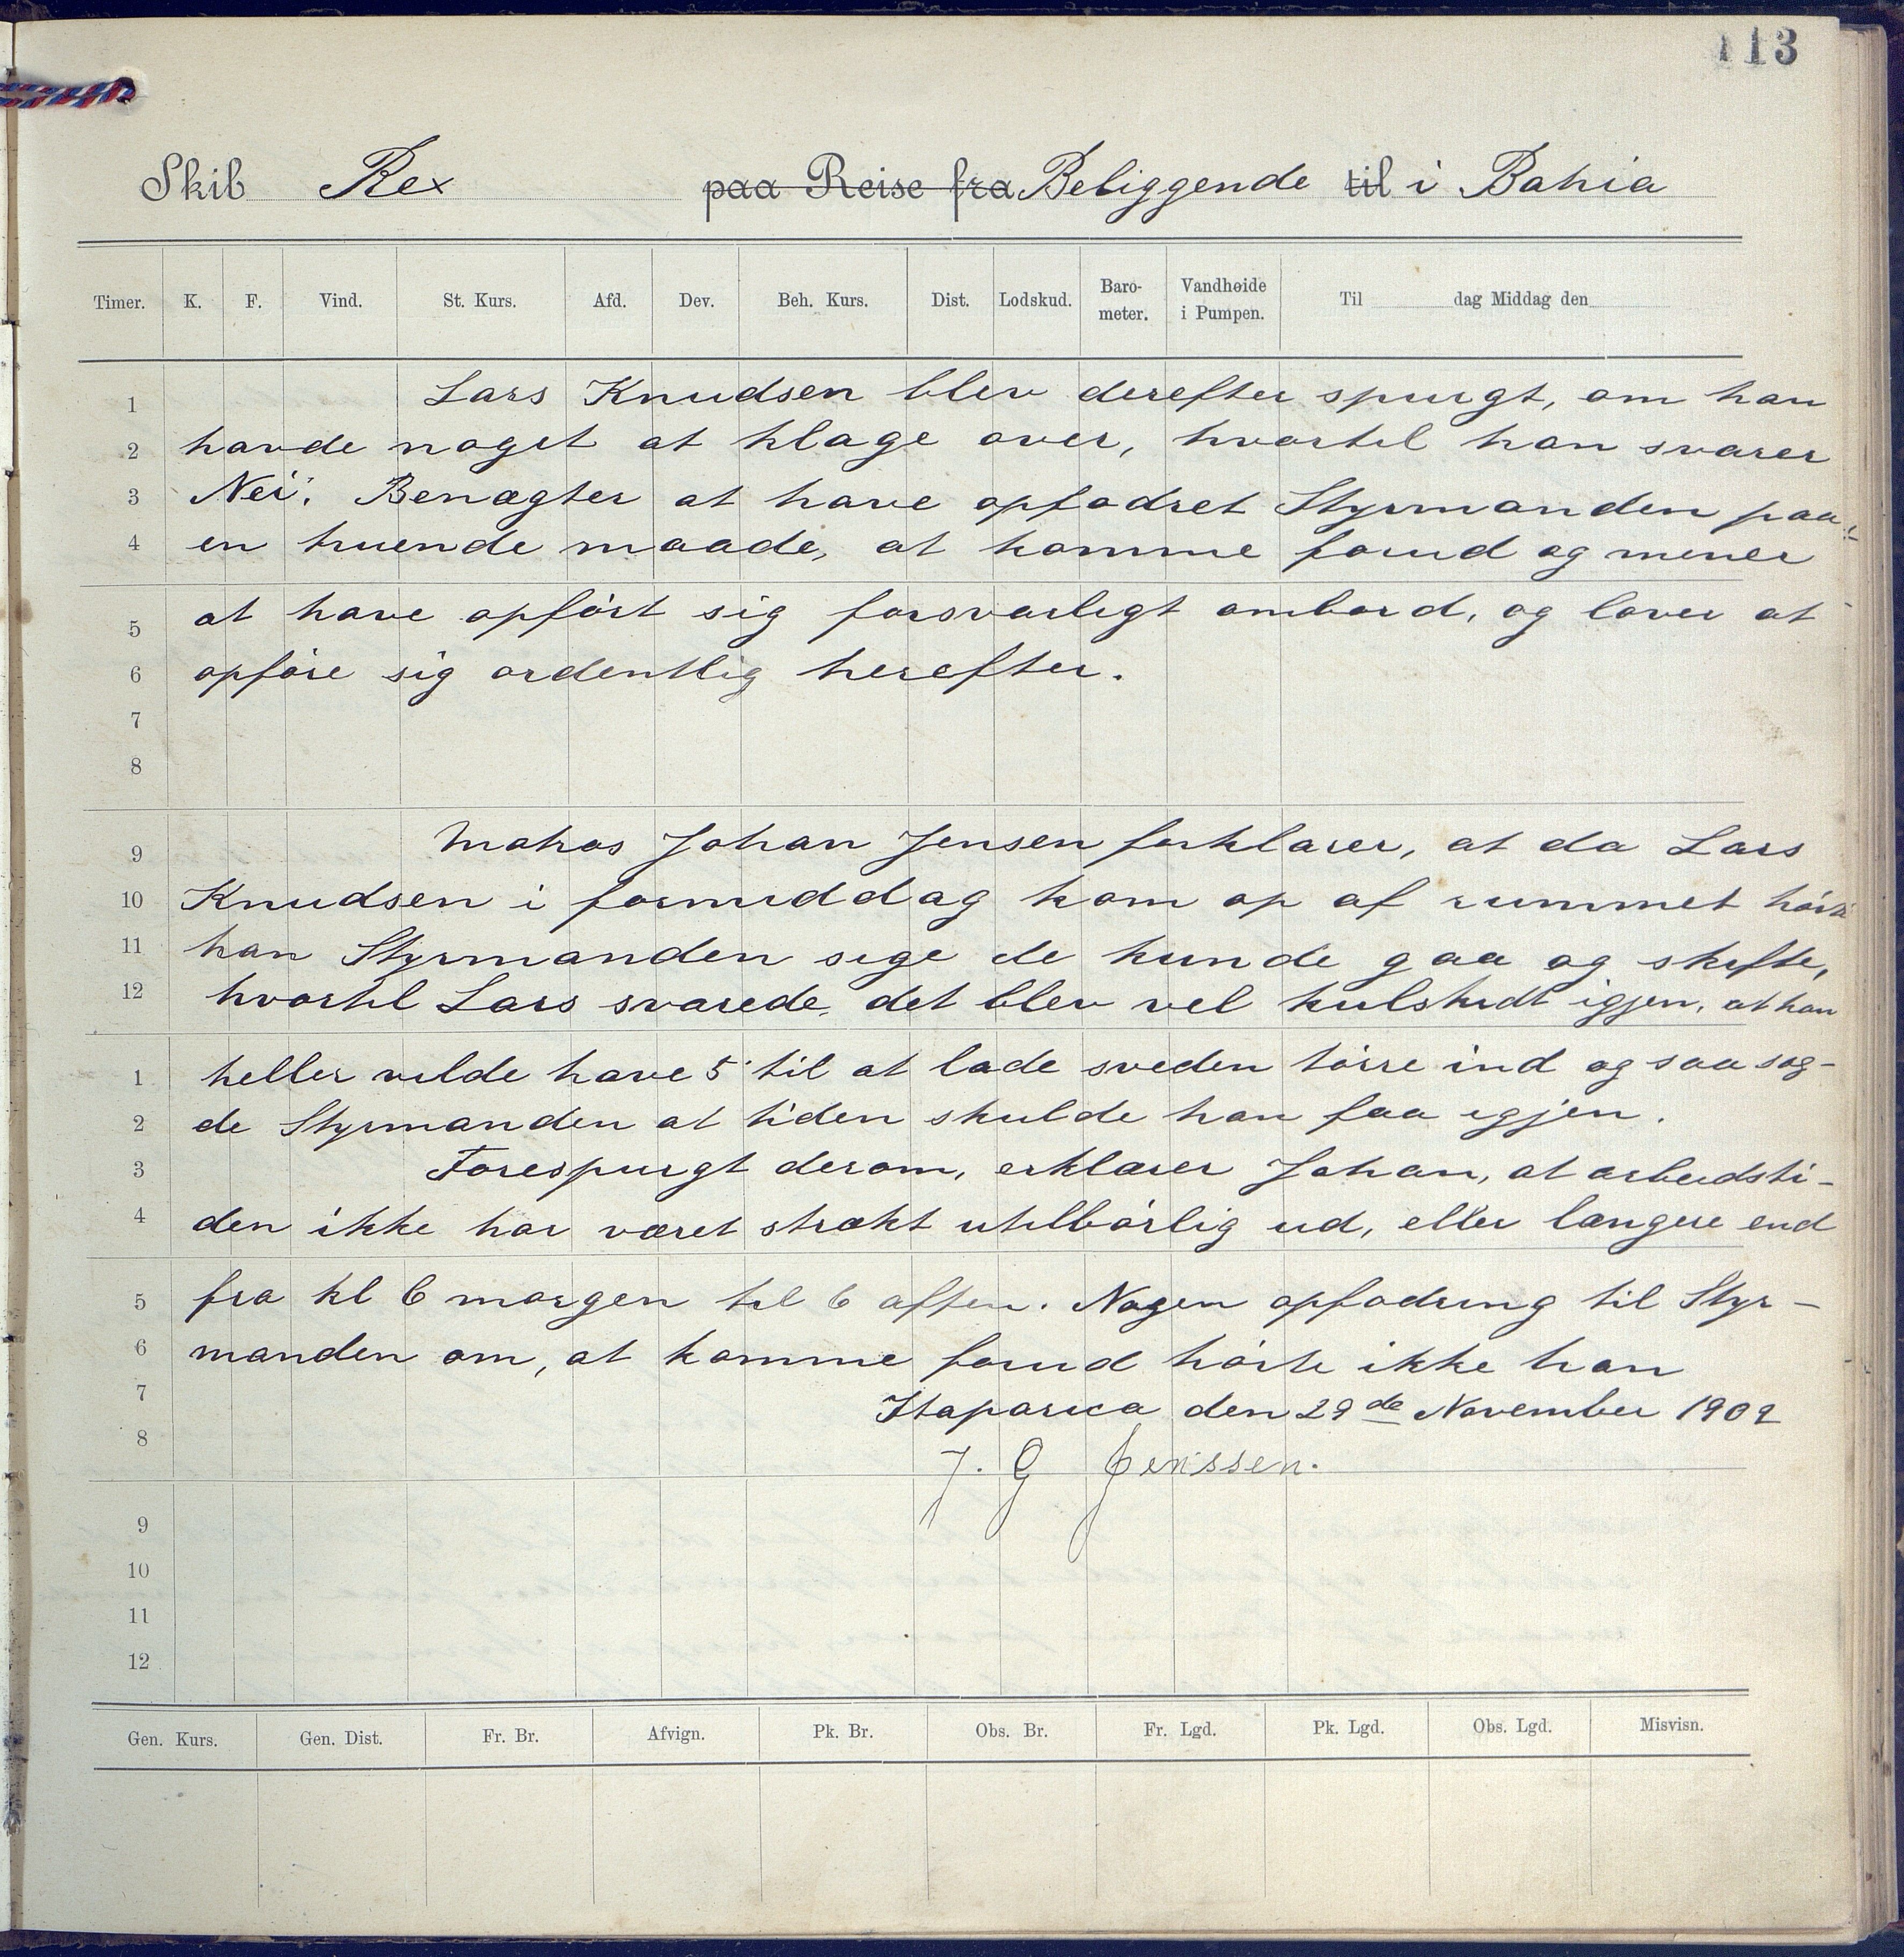 113
Skib Rex paa Reise fra Beliggende til i Bahia
Timer. K. F. Vind. St. Kurs. Afd. Dev. Beh. Kurs. Dist. Lodskud. Baro-meter. Vandhøide i Pumpen. Til dag Middag den
1 Lars Knudsen blev derefter spurgt, om han
2 havde noget at klage over, hvortil han svarer
3 Nei. Benægter at have opfodret Styrmanden paa
4 en truende maade, at komme forud og mener
5 at have opført sig forsvarligt ombord, og lover at
6 opføre sig ordentlig herefter.
7
8
9 Matros Johan Jensen forklarer, at da Lars
10 Knudsen i formiddag kom op af rummet hørte
11 han Styrmanden sige de kunde gaa og skifte,
12 hvortil Lars svarede, det blev vel kulskidt igjen, at han
1 heller vilde have 5 til at lade sveden tørre ind og saa sag-
2 de Styrmanden at tiden skulde han faa igjen.
3 Forespurgt derom, erklærer Johan, at arbeidsti-
4 den ikke har været strakt utilbørlig ud, eller længere end
5 fra kl 6 morgen til 6 aften. Nogen opfodring til Styr-
6 manden om, at komme forud hørte ikke han
7 Itaparica den 29de November 1902
8 J. G Jenssen.
9
10
11
12
Gen. Kurs. Gen. Dist. Fr. Br. Afvign. Pk. Br. Obs. Br. Fr. Lgd. Pk. Lgd. Obs. Lgd. Misvisn.